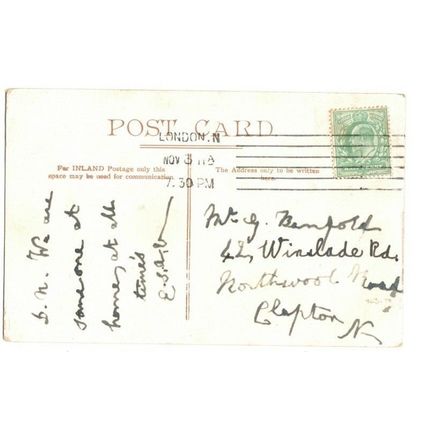 POST CARD.
LONDON. N
NOV 3 11 8
7.30 PM
For INLAND Postage only this
space may be used for communication
The Address only to be written
here.
S. N. We are
some one at
home, at all
times
Mr G. Penfold
42, Winslade Rd.
Northwood Road
Clapton
N